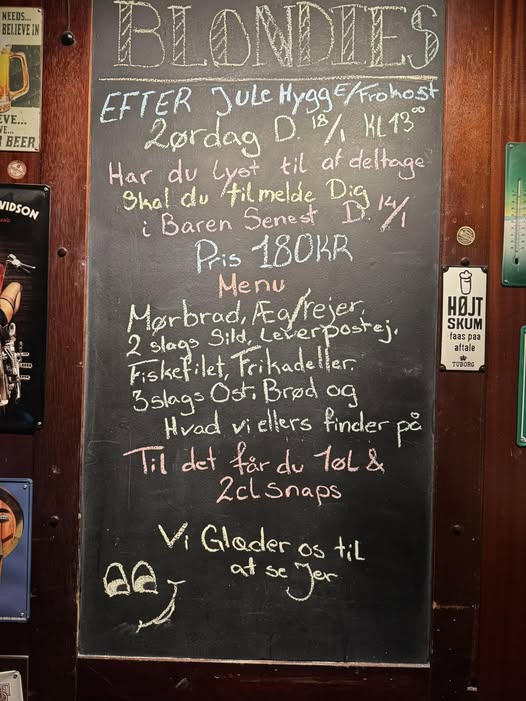 NEEDS...
BELIEVE IN
EVE...
WE...
BEER
VIDSON
BLONDIES
EFTER JULE HYGGE/Frokost
Lørdag D. 18/1 KL 13⁰⁰
Har du lyst til at deltage
skal du tilmelde Dig
i Baren Senest D. 14/1
Pris 180KR
Menu
Mørbrad, Æg/rejer,
2 slags Sild, Leverpostej.
Fiskefilet, Frikadeller.
3slags Ost. Brød og
Hvad vi ellers finder på
Til det får du 1øl &
2cl snaps
Vi Glæder os til
at se Jer
HØJT
SKUM
faas paa
aftale
TUBORG